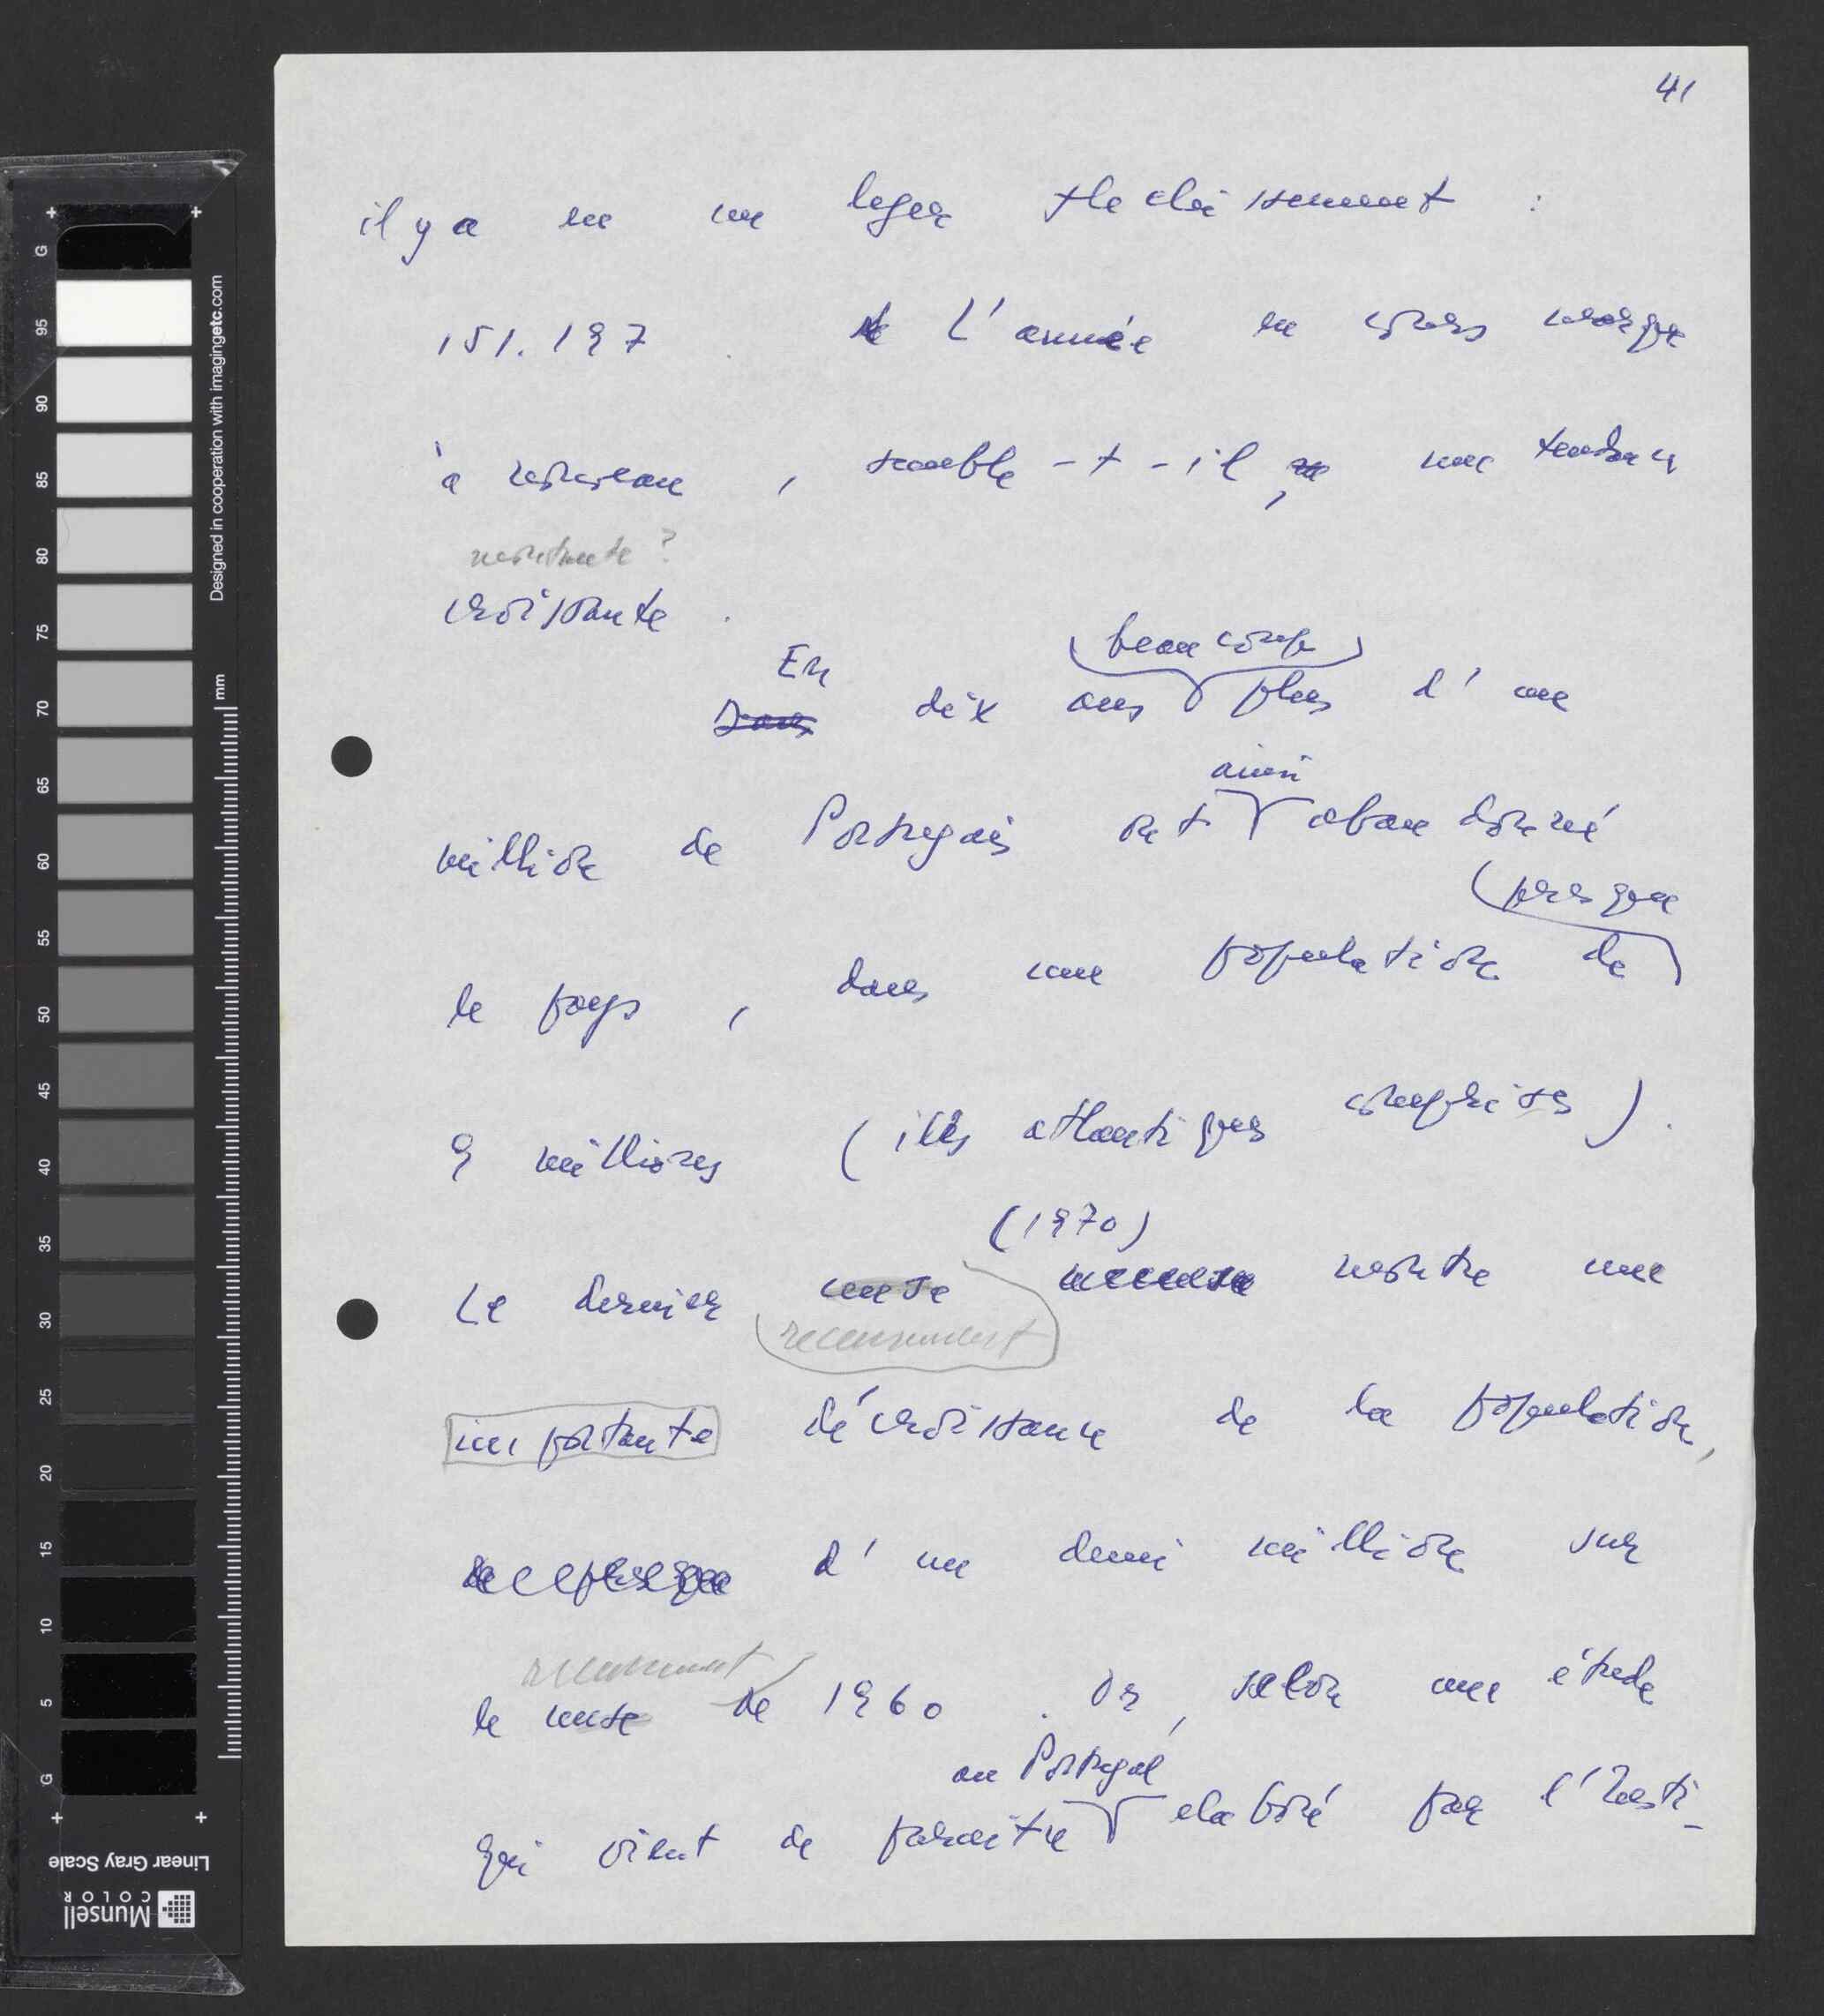 41
il y a eu un leger flechissement :
151.197 . L'année en cours marque
à nouveau , semble-t-il, une tendance
montante ?
croissante .
En beaucoup
Dans dix ans plus d'un
ainsi
million de Portugais ont abandonné
presque
le pays , dans une population de
9 millions (iles atlantiques comprises).
(1970)
Le dernier cense montre une
recensement
importante décroissance de la population,
d'un demi million sur
recensement
le cense de 1960 . Or, selon une étude
au Portugal
qui vient de paraitre elaboré par l'Insti-
Designed in cooperation with imagingetc.com
mm
G 95 90 85 80 75 70 65 60 55 50 45 40 35 30 25 20 15 10 5 G
Linear Gray Scale
Munsell
COLOR